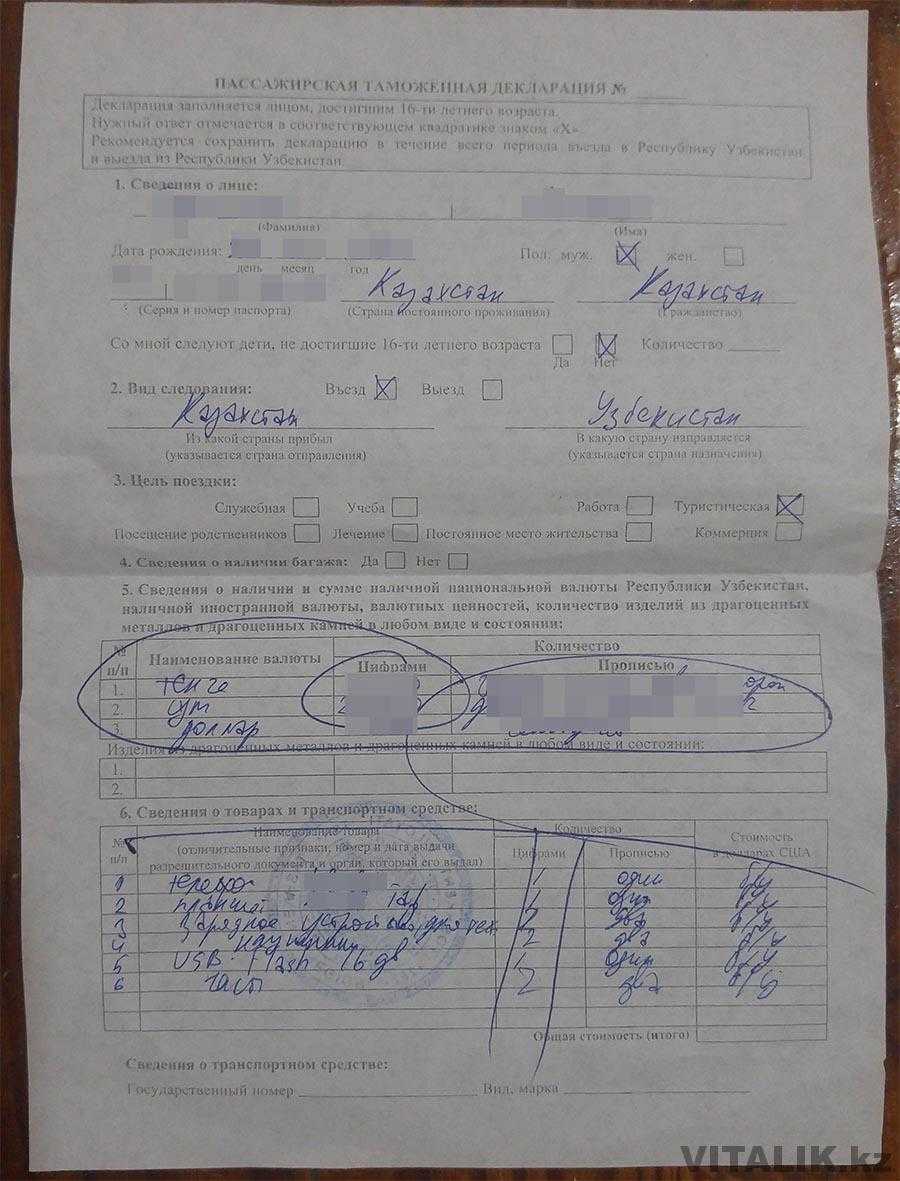 ПАССАЖИРСКАЯ ТАМОЖЕННАЯ ДЕКЛАРАЦИЯ №
Декларация заполняется лицом, достигшим 16-ти летнего возраста.
Нужный ответ отмечается в соответствующем квадратике знаком «X»
Рекомендуется сохранить декларацию в течение всего периода въезда в Республику Узбекистан
и выезда из Республики Узбекистан.
1. Сведения о лице:
(Фамилия) (Имя)
Дата рождения: Пол: муж. X жен.
день месяц год
Казахстан Казахстан
(Серия и номер паспорта) (Страна постоянного проживания) (Гражданство)
Со мной следуют дети, не достигшие 16-ти летнего возраста X Количество
Да Нет
2. Вид следования: Въезд X Выезд
Казахстан Узбекистан
Из какой страны прибыл В какую страну направляется
(указывается страна отправления) (указывается страна назначения)
3. Цель поездки:
Служебная Учеба Работа Туристическая X
Посещение родственников Лечение Постоянное место жительства Коммерция
4. Сведения о наличии багажа: Да Нет
5. Сведения о наличии и сумме наличной национальной валюты Республики Узбекистан,
наличной иностранной валюты, валютных ценностей, количество изделий из драгоценных
металлов и драгоценных камней в любом виде и состоянии:
№ п/п Наименование валюты Количество
Цифрами Прописью
1. тенге
2. сум
3. доллар
Изделия из драгоценных металлов и драгоценных камней в любом виде и состоянии:
1.
2.
6. Сведения о товарах и транспортном средстве:
№ п/п Наименование товара Количество Стоимость
(отличительные признаки, номер и дата выдачи Цифрами Прописью в долларах США
разрешительного документа и орган, который его выдал)
1 1 один б/у
2 планшет Tab 1 один б/у
3 зарядное устройство для тел 2 два б/у
4 наушники 2 два б/у
5 USB Flash 16 1 один б/у
6 часы 2 два б/у
Общая стоимость (итого)
Сведения о транспортном средстве:
Государственный номер Вид, марка
VITALIK.kz